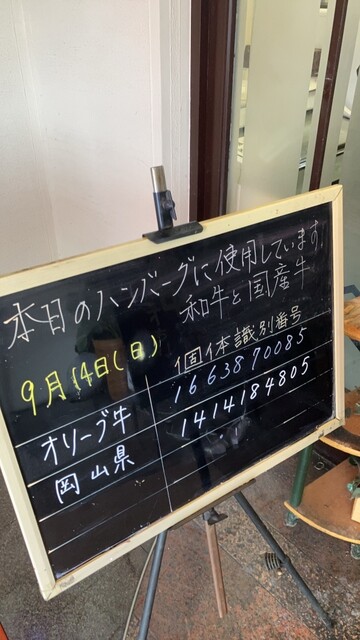 本日のハンバーグに使用しています。
和牛と国産牛
9月14日(日)
個体識別番号
オリーブ牛 1663870085
岡山県 1414184805